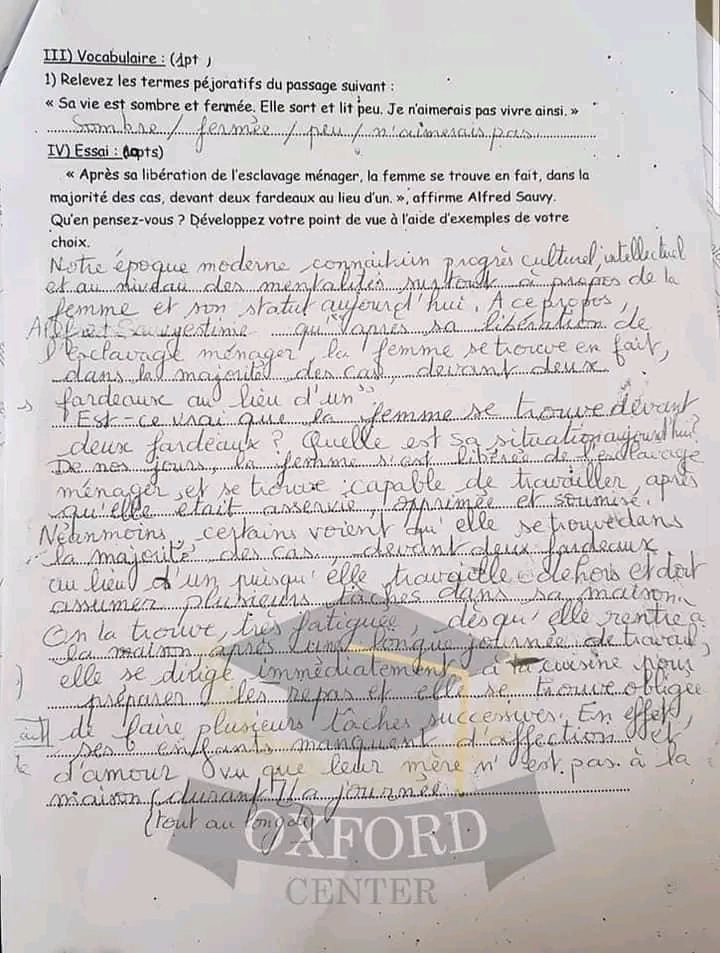 III) Vocabulaire : (1pt )
1) Relevez les termes péjoratifs du passage suivant :
« Sa vie est sombre et fermée. Elle sort et lit peu. Je n'aimerais pas vivre ainsi. »
Sombre / fermée / peu / n'aimerais pas
IV) Essai : (10pts)
« Après sa libération de l'esclavage ménager, la femme se trouve en fait, dans la
majorité des cas, devant deux fardeaux au lieu d'un. », affirme Alfred Sauvy.
Qu'en pensez-vous ? Développez votre point de vue à l'aide d'exemples de votre
choix.
Notre époque moderne connait un progrès culturel, intellectuel
et au niveau des mentalités surtout à propos de la
femme et son statut aujourd'hui. A ce propos,
Alfred Sauvy estime qu'"après sa libération de
l'esclavage ménager, la femme se trouve en fait,
dans la majorité des cas, devant deux
fardeaux au lieu d'un"
Est-ce vrai que la femme se trouve devant
deux fardeaux ? Quelle est sa situation aujourd'hui?
De nos jours, la femme s'est libérée de l'esclavage
ménager et se trouve capable de travailler après
qu'elle était asservie, opprimée et soumise.
Néanmoins, certains voient qu'elle se trouve dans
la majorité des cas devant deux fardeaux
au lieu d'un puisqu'elle travaille dehors et doit
assumer plusieurs tâches dans sa maison.
On la trouve, très fatiguée, dès qu'elle rentre à
la maison après une longue journée de travail,
elle se dirige immédiatement à la cuisine pour
préparer les repas et elle se trouve obligée
de faire plusieurs tâches successives. En effet,
ses enfants manquent d'affection et
d'amour vu que leur mère n'est pas à la
maison (durant) la journée.
(tout au long de)
OXFORD
CENTER